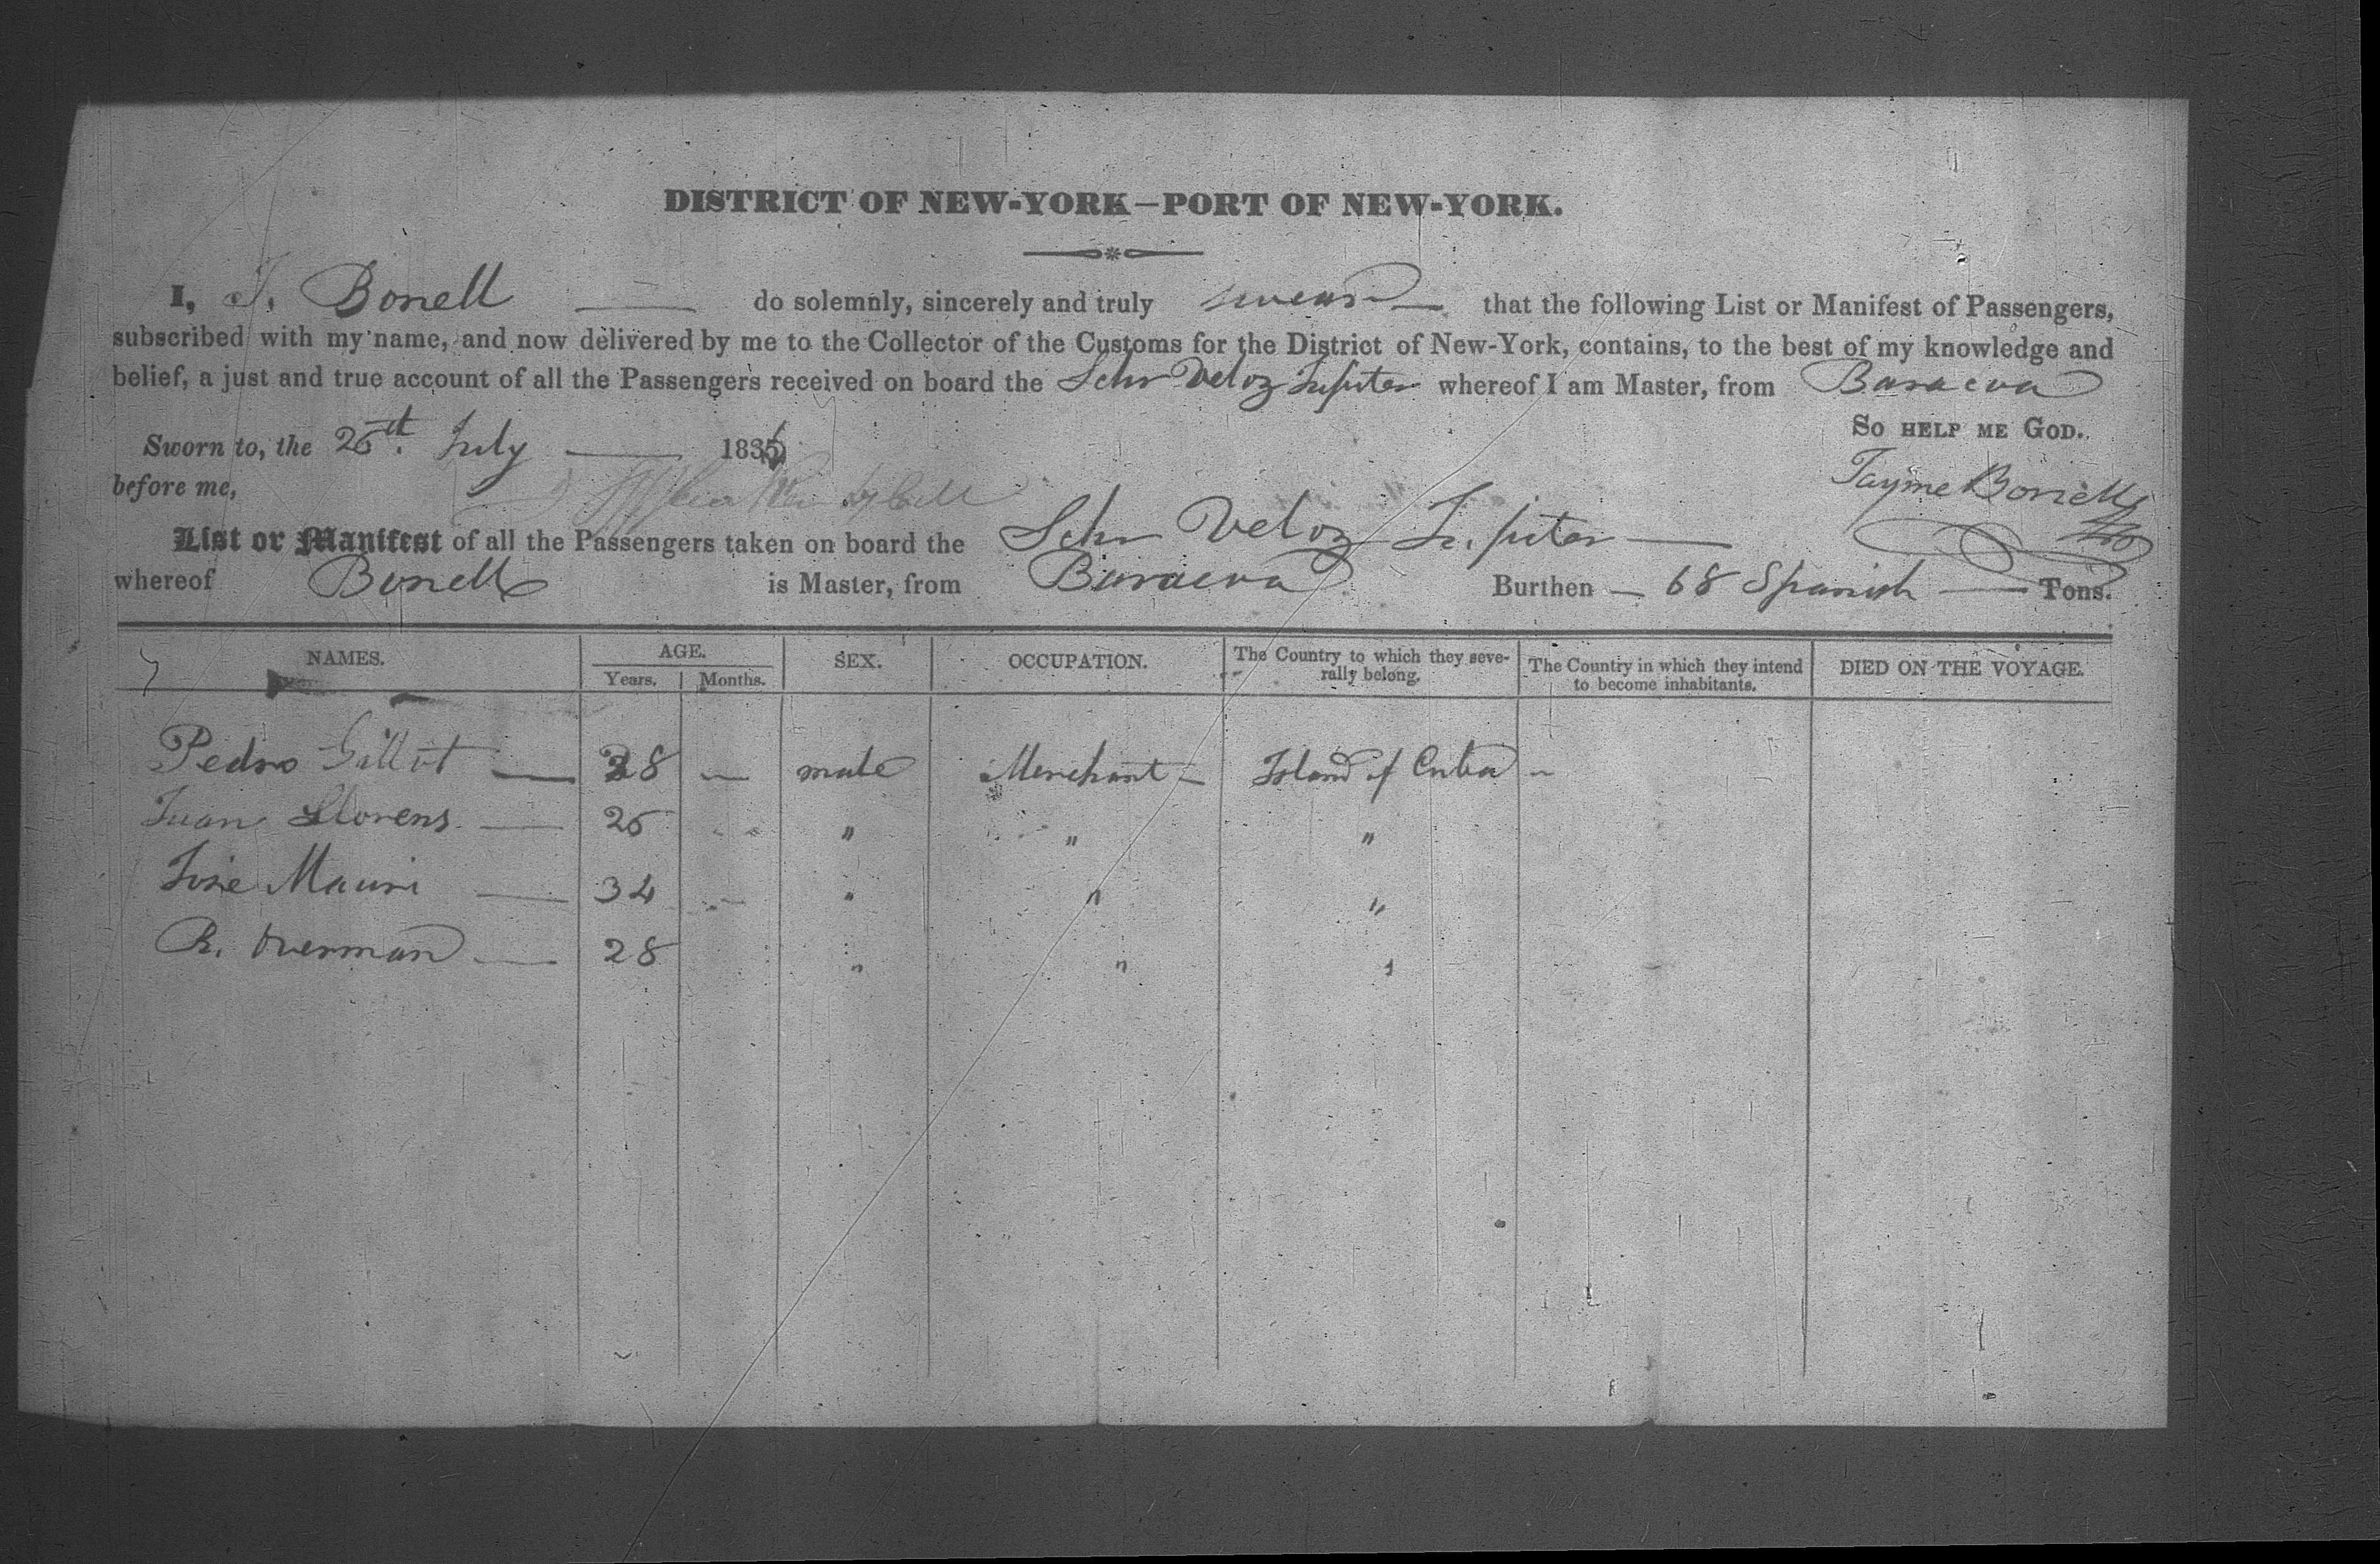 DISTRICT OF NEW-YORK—PORT OF NEW-YORK.
I, J. Bonell do solemnly, sincerely and truly swear that the following List or Manifest of Passengers,
subscribed with my name, and now delivered by me to the Collector of the Customs for the District of New-York, contains, to the best of my knowledge and
belief, a just and true account of all the Passengers received on board the Schr Veloz Jupiter whereof I am Master, from Baracoa
So HELP ME GOD.
Sworn to, the 25th. July 1836
before me,
Jayme Bonell
List or Manifest of all the Passengers taken on board the Schr Veloz Jupiter
whereof Bonell is Master, from Baracoa Burthen 68 Spanish Tons.
NAMES. AGE. Years. Months. SEX. OCCUPATION. The Country to which they severally belong. The Country in which they intend to become inhabitants. DIED ON THE VOYAGE.
Pedro 28 male Merchant Island of Cuba
Juan Llorens 25 " " "
Jose Mauri 34 " " "
R. Overman 28 " " "